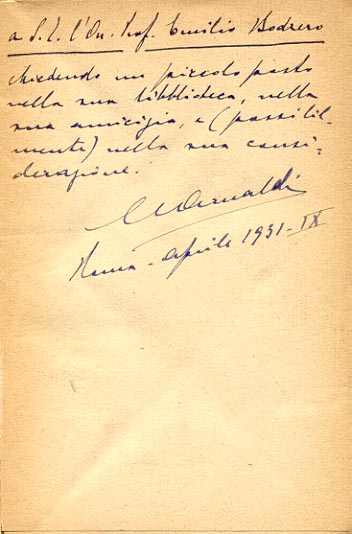 a S. E. l'On. Prof. Emilio Bodrero
chiedendo un piccolo posto
nella sua bibblioteca, nella
sua amicizia, e (possibil-
mente) nella sua consi-
derazione.
Roma - Aprile 1931 - IX